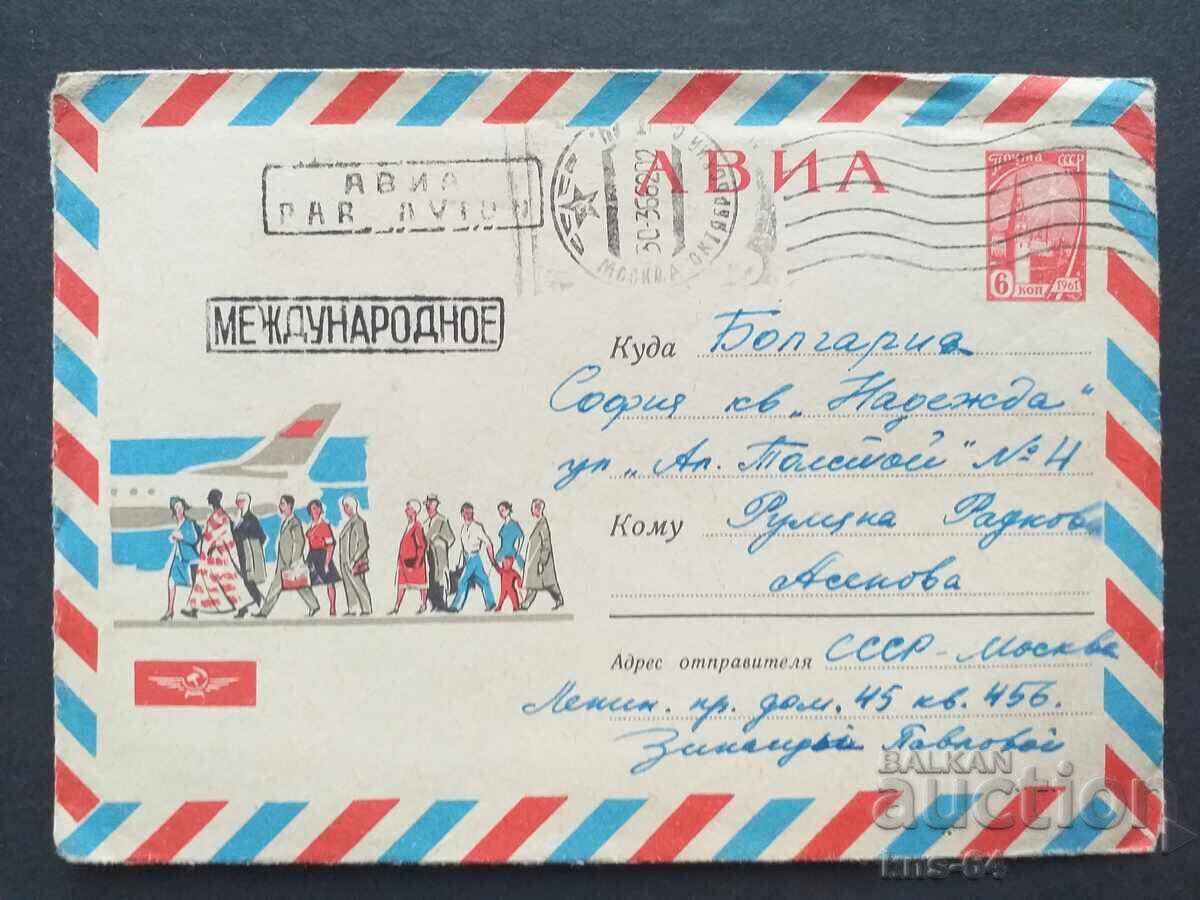 АВИА
PAR AVION
АВИА
30-36820
МОСКВА ОКТЯБРЬ
ПОЧТА СССР
6 КОП 1961
МЕЖДУНАРОДНОЕ
Куда Болгария
София кв „Надежда“
ул „Ал. Толстой“ № 4
Кому Румяна Радкова
Асенова
Адрес отправителя СССР-Москва
Ленин. пр. дом. 45 кв. 456.
Зинаиды Павловой
BALKAN
auction
kns-64